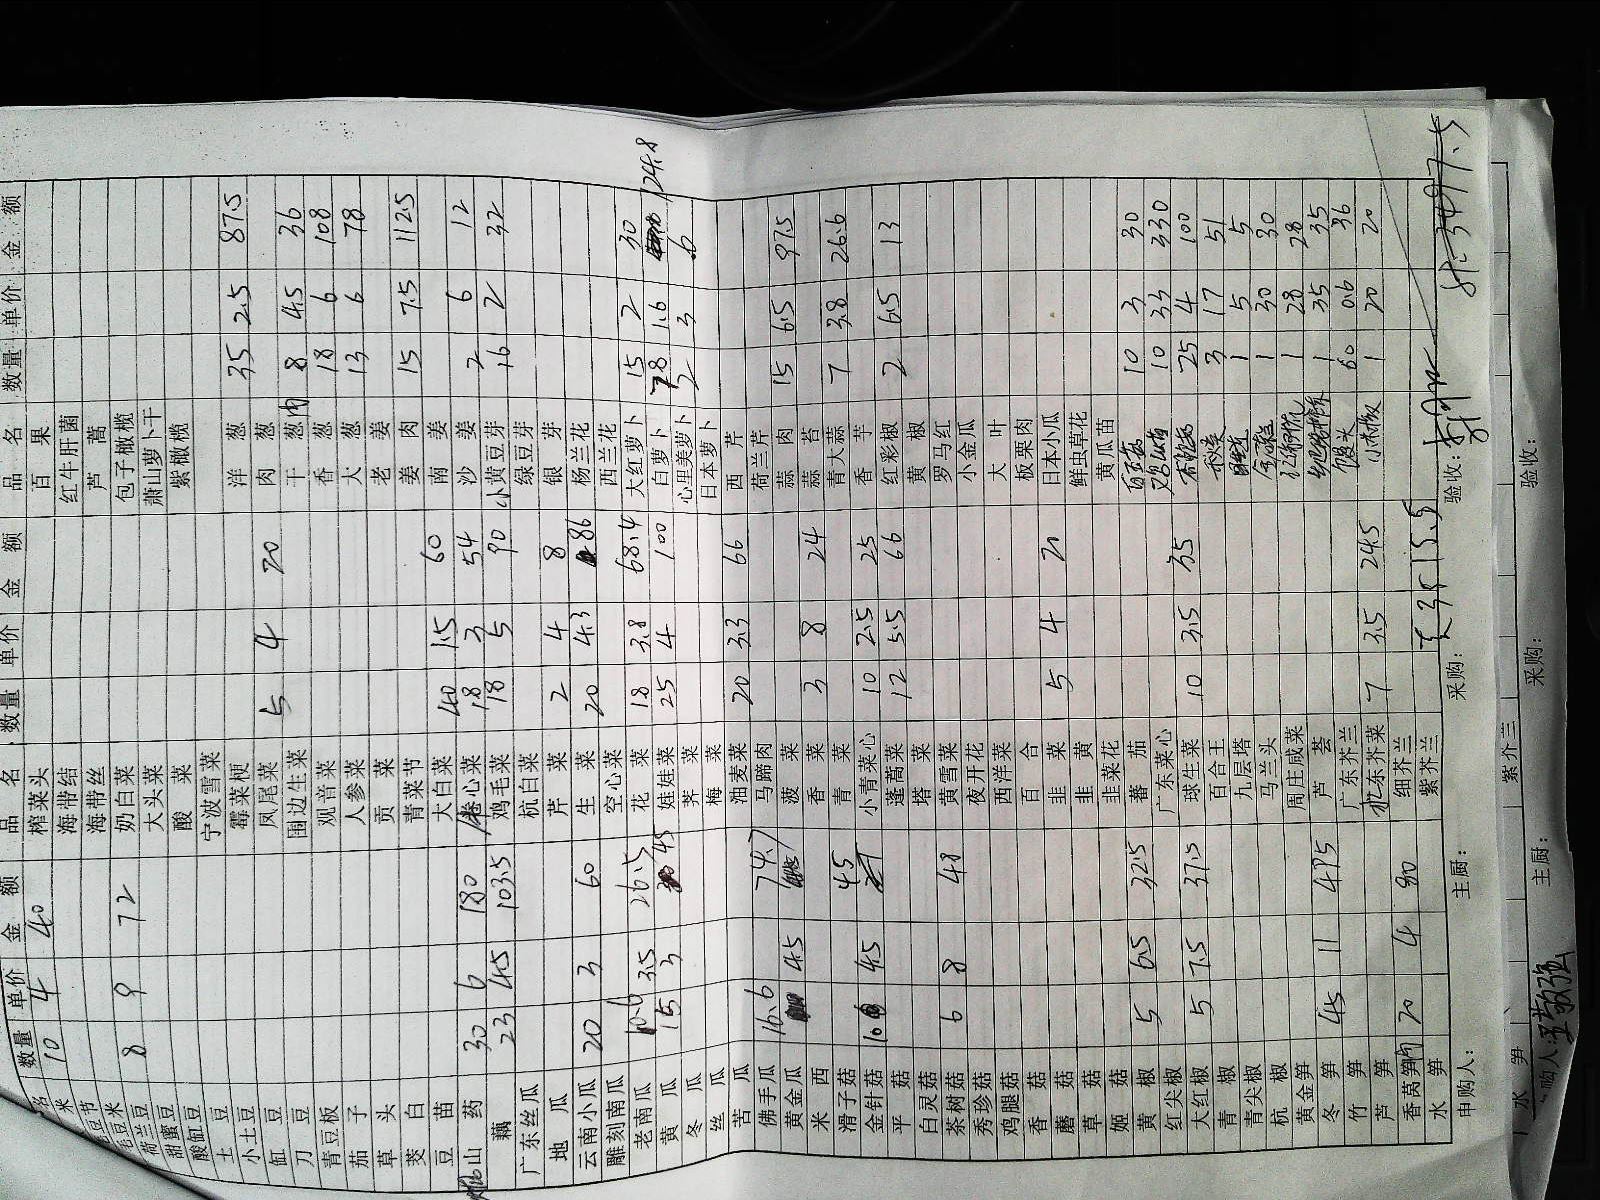 数量 单价 金额 品名 数量 单价 金额 品名 数量 单价 金额
米 10 4 40 榨菜头 百果
豆节 海带结 红牛肝菌
毛豆米 海带丝 芦蒿
荷兰豆 8 9 72 奶白菜 包子橄榄
甜蜜豆 大头菜 萧山萝卜干
酸缸豆 酸菜 紫橄榄
土豆 宁波雪菜
小土豆 霉菜梗 洋葱 35 2.5 87.5
缸豆 凤尾菜 5 4 20 肉葱
刀豆 围边生菜 干葱肉 8 4.5 36
青豆板 观音菜 香葱 18 6 108
茄子 人参菜 大葱 13 6 78
草头 贡菜 老姜
茭白 青菜节 姜肉 15 7.5 112.5
豆苗 大白菜 40 1.5 60 南姜
山药 30 6 180 卷心菜 18 3 54 沙姜 2 6 12
藕 23 4.5 103.5 鸡毛菜 18 5 90 小黄豆芽 16 2 32
广东丝瓜 杭白菜 绿豆芽
地瓜 芹菜 2 4 8 银芽
云南小瓜 20 3 60 生菜 20 4.3 86 杨兰花
雕刻南瓜 空心菜 西兰花
老南瓜 3.5 26.5 花菜 18 3.8 68.4 大红萝卜 15 2 30
黄瓜 15 3 45 娃娃菜 25 4 100 白萝卜 78 1.6 124.8
冬瓜 荠菜 心里美萝卜 2 3 6
丝瓜 梅菜 日本萝卜
苦瓜 油麦菜 20 3.3 66 西芹
佛手瓜 16.6 74.7 马蹄肉 荷兰芹
黄金瓜 4.5 菠菜 蒜肉 15 6.5 97.5
米西 香菜 3 8 24 蒜苔
滑子菇 45 青菜 青大蒜 7 3.8 26.6
金针菇 10 4.5 小青菜心 10 2.5 25 香芋
平菇 蓬蒿菜 12 5.5 66 红彩椒 2 6.5 13
白灵菇 塔菜 黄椒
茶树菇 6 8 48 黄雪菜 罗马红
秀珍菇 夜开花 小金瓜
鸡腿菇 西洋菜 大叶
香菇 百合 板栗肉
蘑菇 韭菜 5 4 20 日本小瓜
草菇 韭黄 鲜虫草花
姬菇 韭菜花 黄瓜苗
黄椒 5 6.5 32.5 蕃茄 10 3 30
红尖椒 广东菜心 10 33 330
大红椒 5 7.5 37.5 球生菜 10 3.5 35 25 4 100
青椒 百合王 3 17 51
青尖椒 九层塔 1 5 5
杭椒 马兰头 1 30 30
黄金笋 周庄咸菜 1 28 28
冬笋 45 11 495 芦荟 1 35 35
竹笋 广东芥兰 馒头 60 0.6 36
芦笋 东芥菜 7 3.5 24.5 小木板 1 20 20
香窝笋 20 4 80 细芥兰
水笋 紫芥兰
3515.5
申购人： 主厨： 采购： 验收： 3497.5
水笋 紫芥兰
购人： 主厨： 采购： 验收：